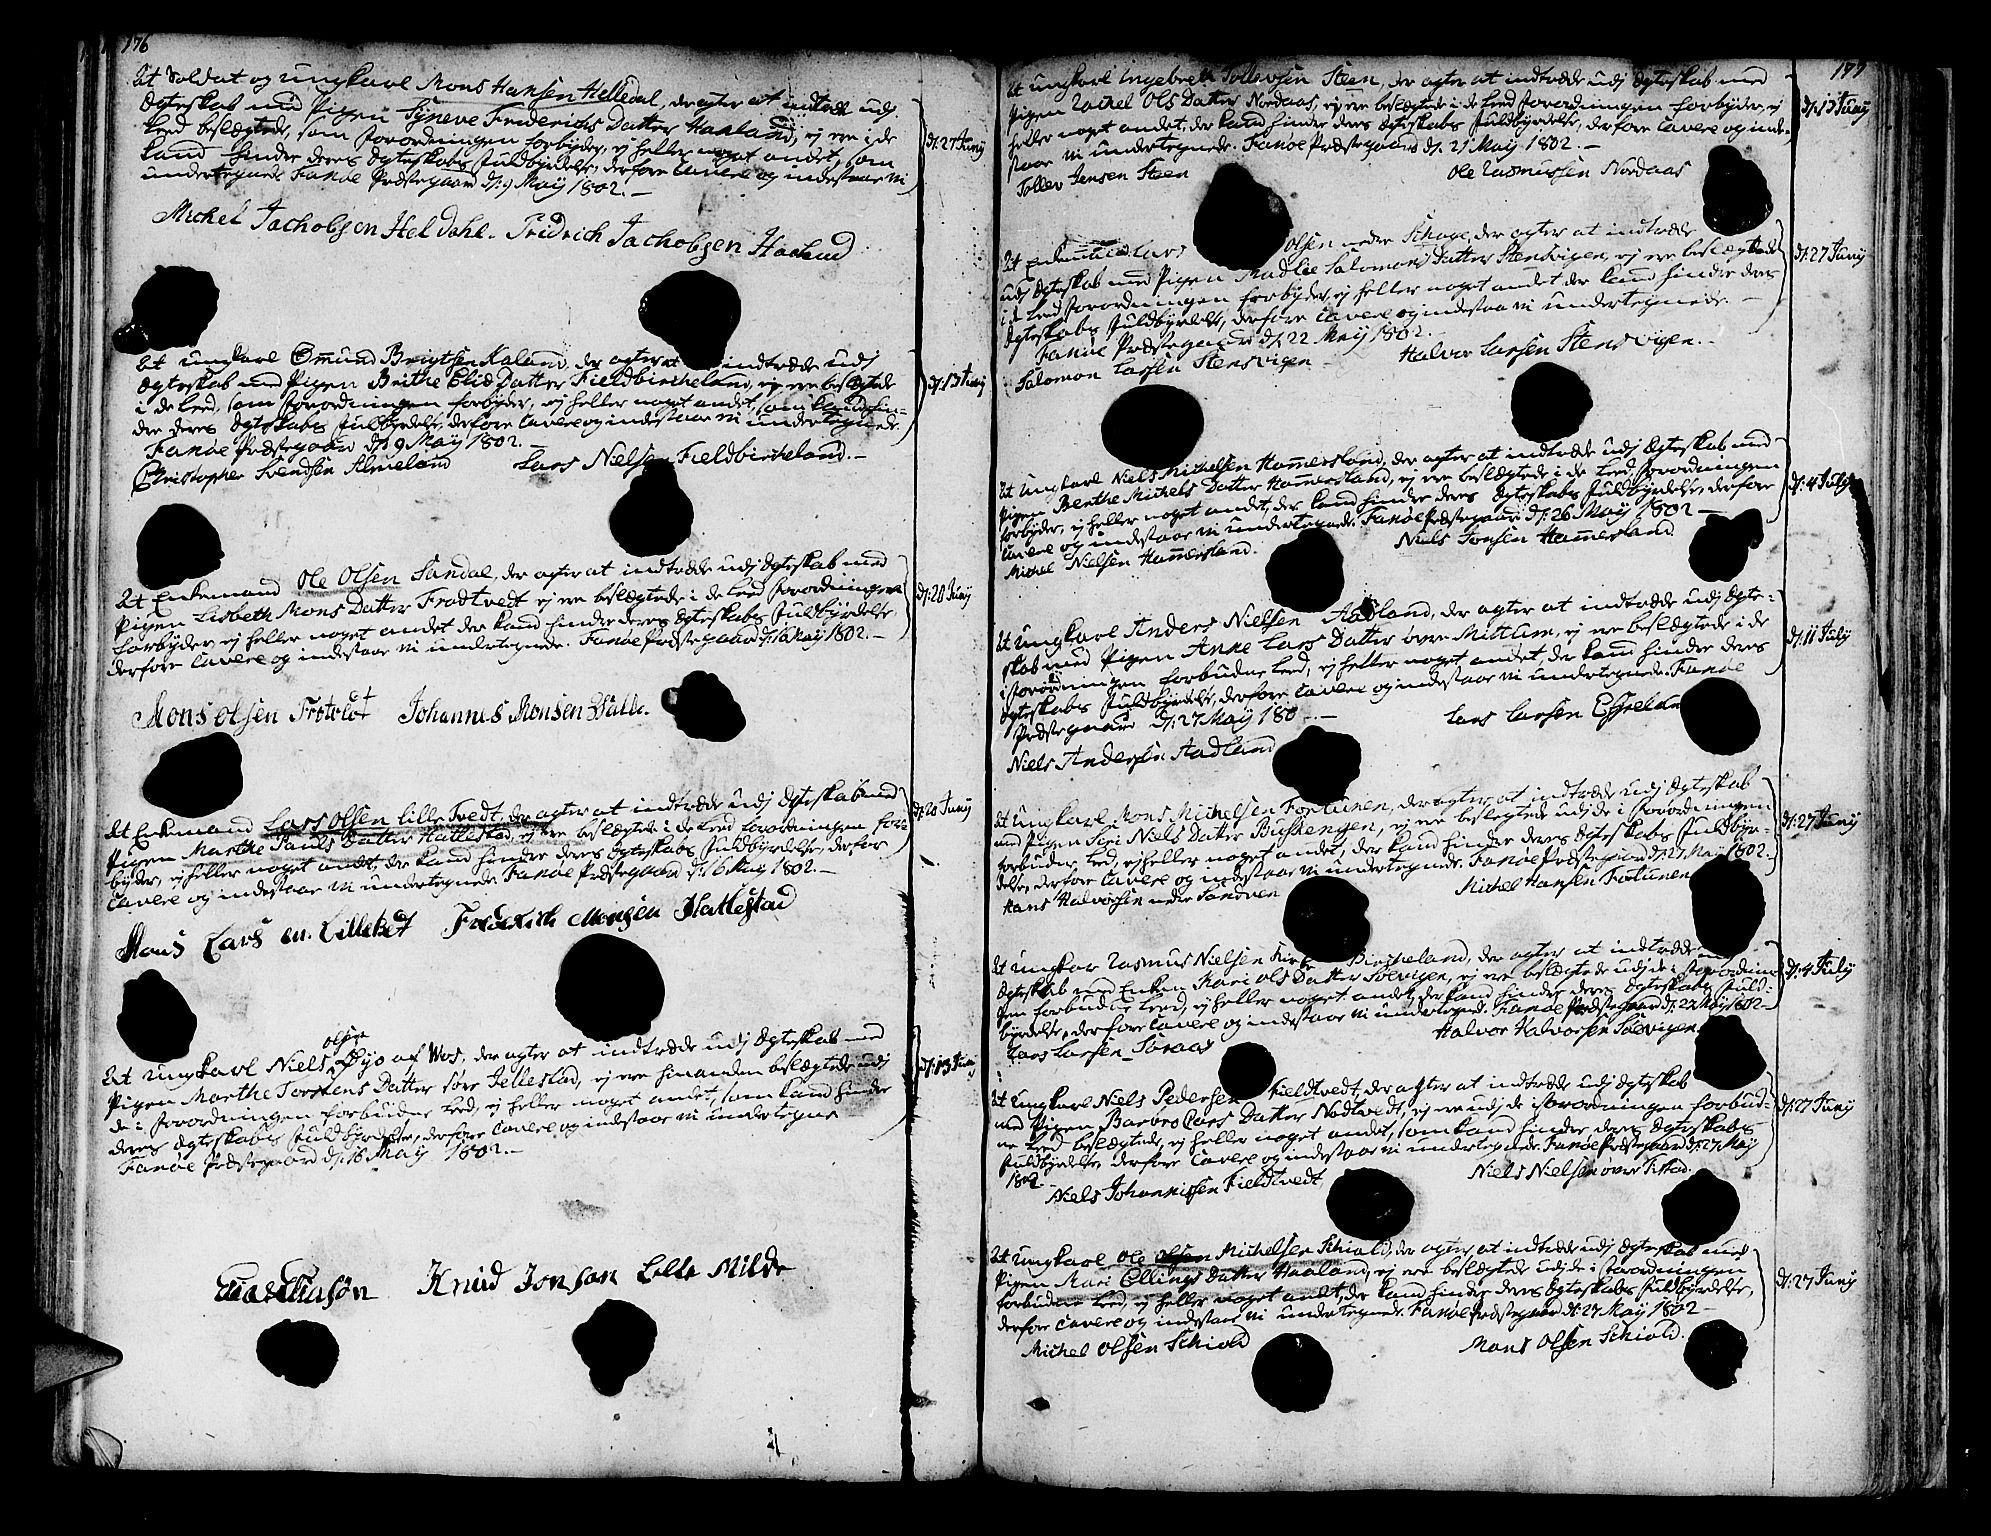 176
At Soldat og Ungkarl Mons Hansen Helledal, der agter at indtræde udj
Ægteskab med Pigen Syneve Frederichs Datter Haaland, ej ere i de
Leed beslægtede, som Forordningen forbyder, ej heller noget andet, som
kand hindre deres Ægteskabs Fuldbyrdelse, derfore Cavere og indestaar vi
undertegnede Fanøe Præstegaard d: 9 Maÿ 1802. —
d: 27 Junÿ
Michel Jachobsen Heldahl. Fridrich Jachobsen Haaland
At Ungkarl Omund Brigtsen Kaland, der agter at indtræde udj
Ægteskab med Pigen Brithe Elie Datter Fieldbircheland, ej ere beslægtede
i de Leed, som Forordningen forbyder, ej heller noget andet, som kand hin-
dre deres Ægteskabs Fuldbyrdelse, derfore Cavere og indestaar vi undertegnede
Fanøe Præstegaard d: 9 Maÿ 1802. —
d: 13 Junÿ
Christopher Svendsen Almeland Lars Nielsen Fieldbircheland. —
At Enkemand Ole Olsen Sandal, der agter at indtræde udj Ægteskab med
Pigen Lisbeth Mons Datter Frodtvedt ej ere beslægtede i de Leed Forordningen
forbyder, ej heller noget andet der kand hindre deres Ægteskabs Fuldbyrdelse
derfore Cavere og indestaar vi undertegnede. Fanøe Præstegaard d: 16 Maÿ 1802. —
d: 20 Junÿ
Mons Olsen Frotvdt Johannes Monsen
At Enkemand Lars Olsen Lille Tvedt, der agter at indtræde udj Ægteskab med
Pigen Marthe Pauls Datter Hattestad, ej ere beslægtede i de Leed Forordningen for-
byder, ej heller noget andet, der kand hindre deres Ægteskabs Fuldbyrdelse, derfor
Cavere og indestaar vi undertegnede Fanøe Præstegaard d: 16 Maÿ 1802. —
d: 20 Junÿ
Mons Lars en. Lilletvedt Frederich Monsen Hattestad
At Ungkarl Niels Olsen Øyjo af Vos, der agter at indtræde udj Ægteskab med
Pigen Marthe Torstens Datter Søre Jellestad, ej ere hinanden beslægtede udj
de i Forordningen forbudne Leed, ej heller noget andet, som kand hindre
deres Ægteskabs Fuldbyrdelse, derfore Cavere og indestaar vi undertegne
Fanøe Præstegaard d: 16 Maÿ 1802. —
d: 13 Junÿ
Knud Jonsson Lille Milde
177
At Ungkarl Ingebreth Tollevsen Steen, der agter at indtræde udj Ægteskab med
Pigen Rachel Ols Datter Nordaas, ej ere beslægtede i de Leed Forordningen forbyder, ej
heller noget andet, der kand hindre deres Ægteskabs Fuldbyrdelse, derfore Cavere og inde-
staar vi undertegnede. Fanøe Præstegaard d: 21 Maÿ 1802. —
d: 13 Junÿ
Tollev Jensen Steen Ole Rasmussen Nordaas
At Enkemand Lars Olsen nedre Schage, der agter at indtræde
udj Ægteskab med Pigen Madlie Salomons Datter Stensvigen, ej ere beslægtede
i de Leed Forordningen forbyder, ej heller noget andet der kand hindre deres
Ægteskabs Fuldbyrdelse, derfore Cavere og indestaar vi undertegnede. —
Fanøe Præstegaard d: 22 Maÿ 1802. —
d: 27 Junÿ
Salomon Larsen Stensvigen Halvor Larsen Stensvigen. —
At Ungkarl Niels Michelsen Hammersland, der agter at indtræde udj Ægteskab med
Pigen Berthe Michels Datter Hammersland, ej ere beslægtede i de Leed, Forordningen
forbyder, ej heller noget andet, der kand hindre deres Ægteskabs Fuldbyrdelse, derfore
Cavere og indestaar vi undertegnede. Fanøe Præstegaard d: 26 Maÿ 1802 —
d: 4 Julÿ
Michel Nielsen Hammersland. Niels Jonsen Hammersland
At Ungkarl Anders Nielsen Aadland, der agter at indtræde udj Ægte-
skab med Pigen Anne Lars Datter övre Mittun, ej ere beslægtede i de
i Forordningen forbudne Leed, ej heller noget andet, der kand hindre deres
Ægteskabs Fuldbyrdelse, derfore Cavere og indestaar vi undertegnede. Fanøe
Præstegaard d: 27 Maÿ 180 . —
d: 11 Julÿ
Niels Andersøn Aadland Lars Larsen
At Ungkarl Mons Michelsen Fortunen, der agter at indtræde udj Ægteskab
med Pigen Siri Niels Datter Buskengen, ej ere beslægtede udj de i Forordningen
forbudne Leed, ej heller noget andet, der kand hindre deres Ægteskabs Fuldbyr-
delse, derfore Cavere og indestaar vi undertegnede. Fanøe Præstegaard d: 27 Maÿ 1802.
d: 27 Junÿ
Hans Halvorsen nedre Sandven Michel Hansen Fortunen
At Ungkar Rasmus Nielsen Kirke Bircheland, der agter at indtræde udj
Ægteskab med Enken Kari Ols Datter Solvigen, ej ere beslægtede udj de i Forordnin-
gen forbudne Leed, ej heller noget andet, der kand hindre deres Ægteskabs Fuld-
byrdelse, derfore Cavere og indestaar vi undertegned. Fanøe Præstegaard d: 22 Maÿ 1802 —
d: 4 Julÿ
Lars Larsen Søraas Halvor Halvorsen Solvigen
At Ungkarl Niels Pedersen Fieldtvedt, der agter at indtræde udj Ægteskab
med Pigen Barbro Lars Datter Nodtvedt, ej ere udj de i Forordningen forbud-
ne Leed beslægtede, ej heller noget andet, som kand hindre deres Ægteskabs
Fuldbyrdelse, derfore Cavere og indestaar vi undertegnede Fanøe Præstegaard d: 27 Maÿ
1802. —
d: 27 Junÿ
Niels Johannissen Fieldtvedt Niels Nielsen övre Titlestad.
At Ungkarl Ole Olsen Michelsen Schiold, der agter at indtræde udj Ægteskab med
Pigen Mari Ellings Datter Haaland, ej ere beslægtede udj de i Forordningen
forbudne Leed, ej heller noget andet, der kand hindre deres Ægteskabs Fuldbyrdelse,
derfore Cavere og indestaar vi undertegnede. Fanøe Præstegaard d: 27 Maÿ 1802 —
d: 27 Junÿ
Michel Olsen Schiold Mons Olsen Schiold.